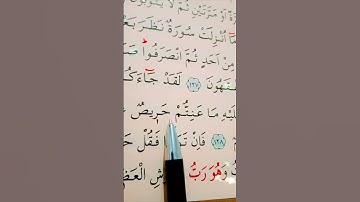 ةً اَوْ مَرَّتَيْنِ ثُمَّ لَا يَتُوبُونَ
مَٓا اُنْزِلَتْ سُورَةٌ نَظَرَ بَعْ
مِنْ اَحَدٍ ثُمَّ انْصَرَفُوا صَ
فْقَهُونَ ﴿١٢٧﴾ لَقَدْ جَٓاءَكُ
عَلَيْهِ مَا عَنِتُّمْ حَرِيصٌ عَ
﴿١٢٨﴾ فَاِنْ تَوَ فَقُلْ حَ
وَهُوَ رَبُّ شِ الْعَظ